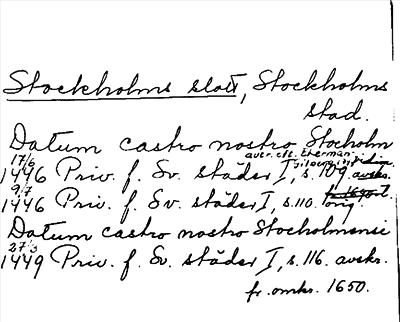 Stockholms slott, Stockholms
stad.
Datum castro nostro Stocholm
17/6 avskr. eft.
1446 Priv. f. Sv. städer I, s. 109. avskr.
9/7
1446 Priv. f. Sv. städer I, s. 110. orig.
Datum castro nostro Stocholmensi
27/3
1449 Priv. f. Sv. städer I, s. 116. avskr.
fr. omkr. 1650.